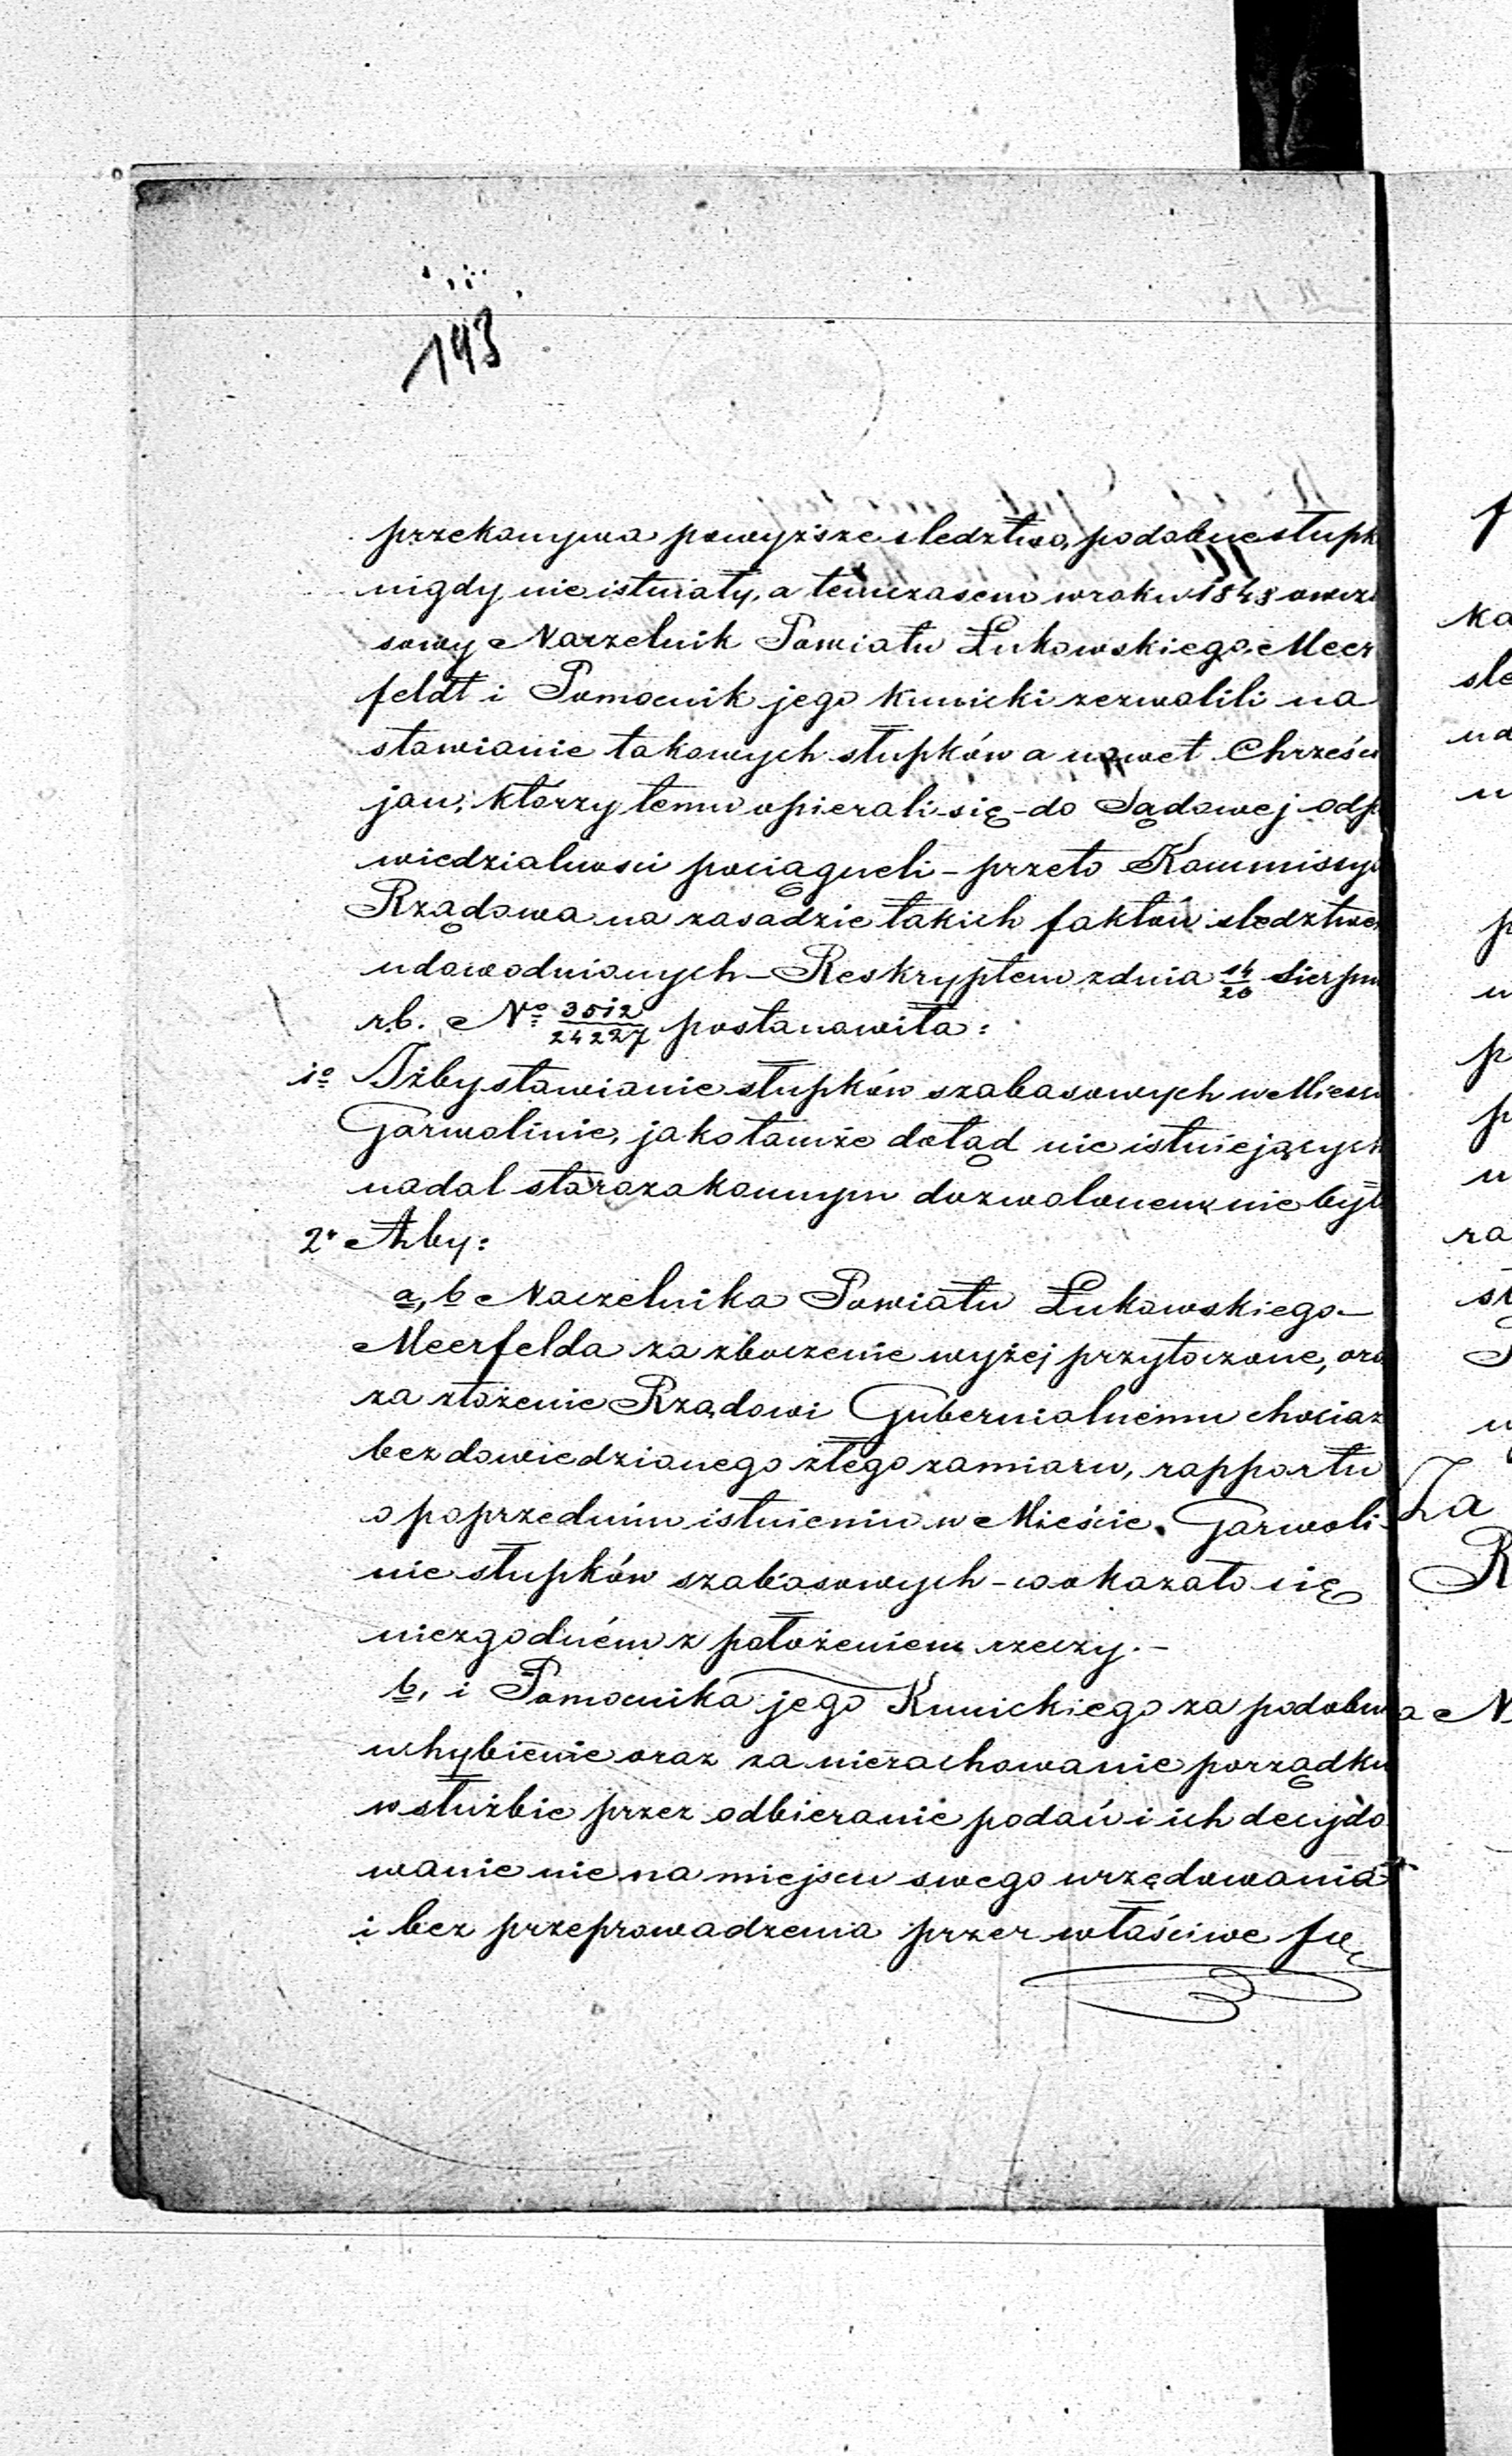 143
przekonywa powyższe sledztwo, podobne słupk
nigdy nie istniały, a temczasem w roku 1848 owcze
sowy Naczelnik Powiatu Łukowskiego Meer
feldt i Pomocnik jego Kunicki zezwolili na
stawianie takowych słupków a nawet Chrześci
jan, którzy temu opierali się - do Sądowej odp
wiedzialnosci pociągneli - przeto Kommissy
Rządowa na zasadzie takich faktów sledztwe
udowodnionych - Reskryptem z dnia 14/26 Sierpn
r.b. No 3512/24227 postanowiła:
1o Iżby stawianie słupków szabasowych w Miesci
Garwolinie, jako tamże dotąd nie istniejących
nadal starozakonnym dozwolonem nie było
2o Aby:
a, b Naczelnika Powiatu Łukowskiego
Meerfelda za zboczenie wyżej przytoczone, ora
za złożenie Rządowi Gubernialnemu chociaz
bez dowiedzianego złego zamiaru, rapportu
o poprzednim istnieniu w Mieście Garwoli
nie słupków szabasowych - co okazało się
niezgodném z położeniem rzeczy. -
b, i Pomocnika jego Kunickiego za podobn
uchybienie oraz za niezachowanie porządku
w służbie przez odbieranie podań i ich decydo
wanie nie na miejscu swego urzędowania
i bez przeprowadzenia przez właściwe
ka
sle
ra
Za
R
a N